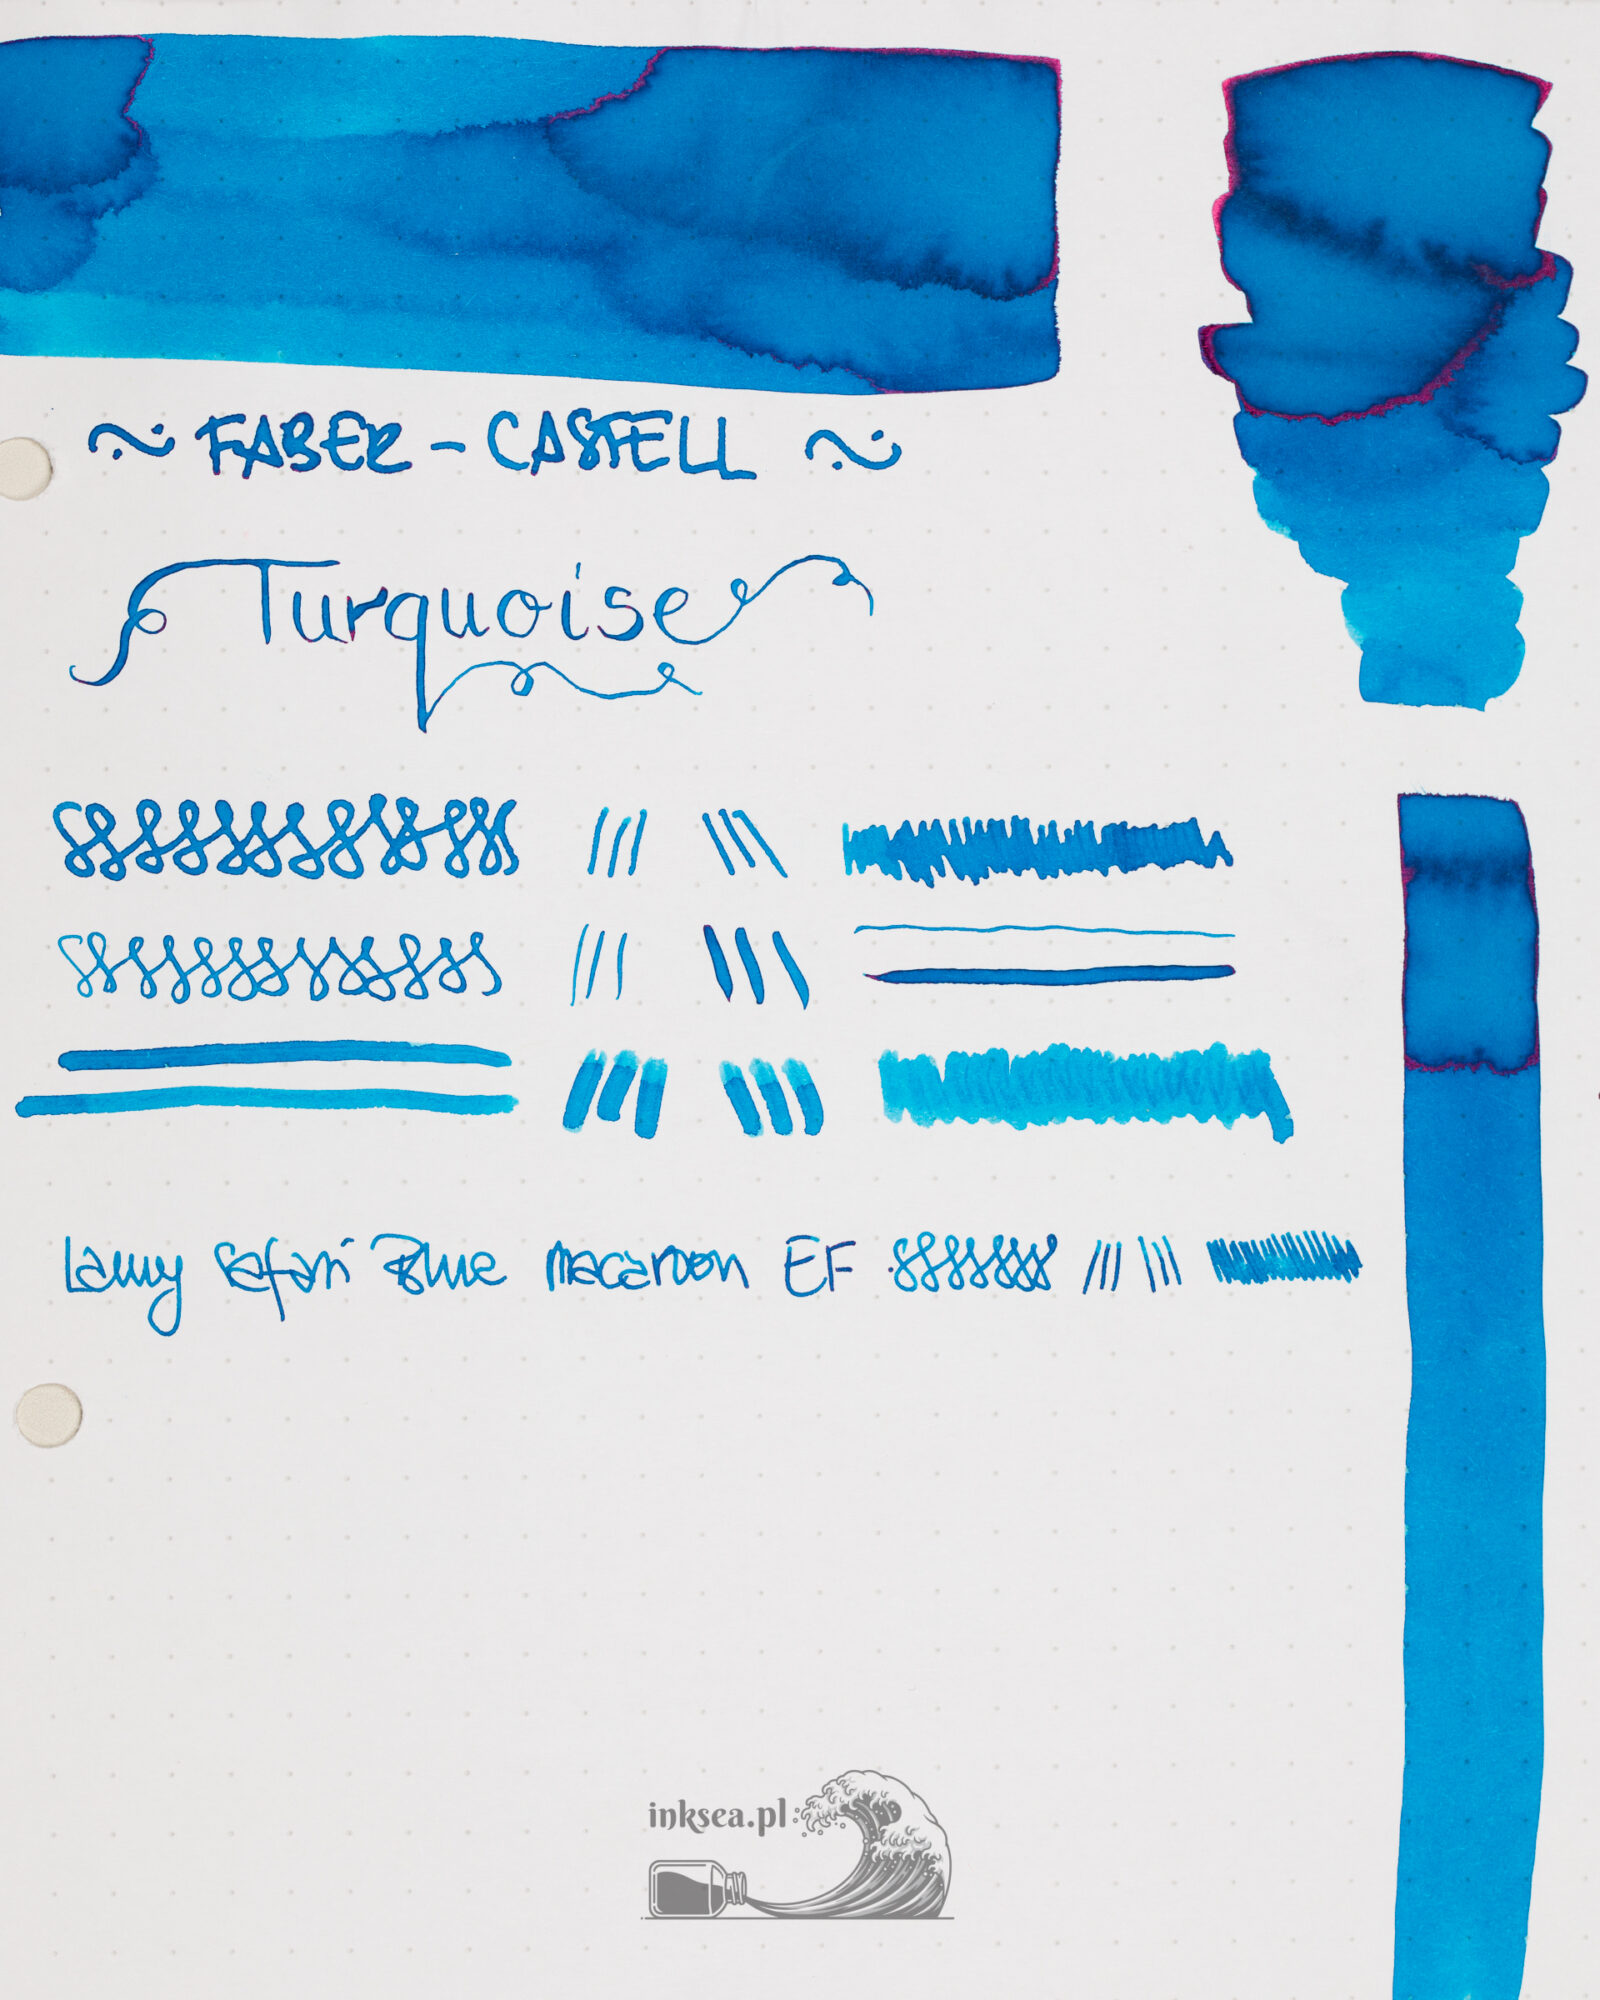 ~ FABER - CASTELL ~
Turquoise
Lamy Safari Blue macaroon EF
inksea.pl